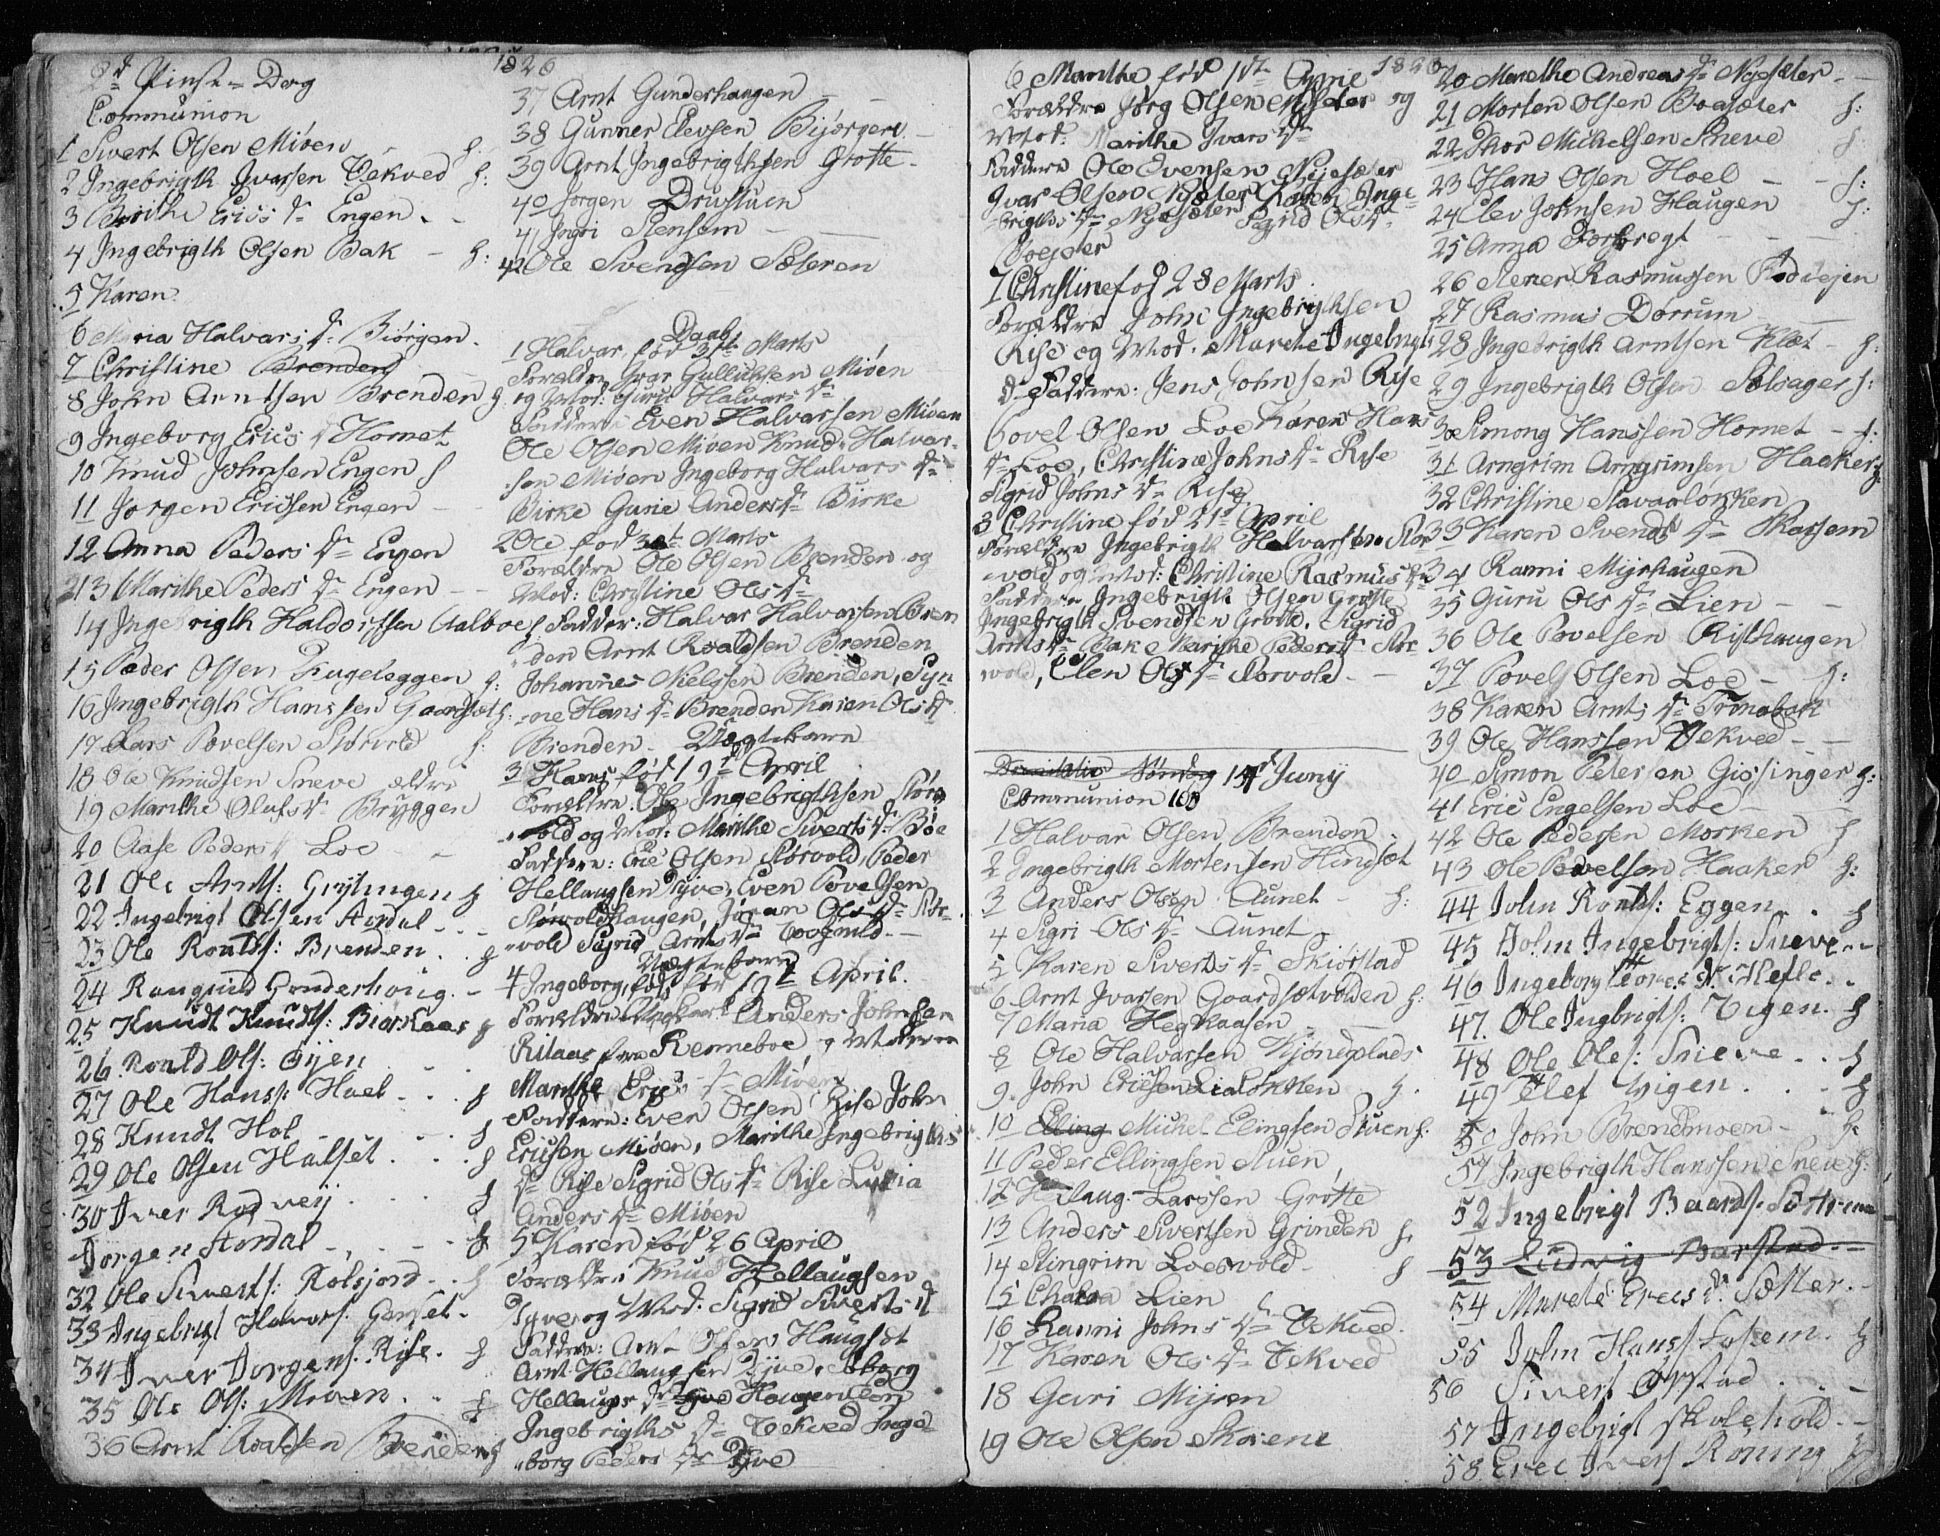 1826
2d Pinse-Dag
Communion
1 Sivert Olsen Miøen h:
2 Ingebrigth Ivarsen Vekved h:
3 Berithe Erics dr Engen
4 Ingebrigth Olsen Bak - h:
5 Karen
6 Halvars dr Biørgen
7 Christine Brenden
8 John Arntsen Brenden h
9 Ingeborg Erics dr Hornet
10 Knud Johnsen Engen h
11 Jørgen Ericsen Engen
12 Anna Peders dr Engen
13 Marithe Peders dr Engen
14 Ingebrigth Haldorssen Aalboe h
15 Peder Olsen h:
16 Ingebrigth Hanssen h:
17 Lars Povelsen Størvold h:
18 Ole Knudsen Sneve ældre
19 Marithe Olufs dr Bryggen
20 Aase Peders dr Loe
21 Ole Arnts: h
22 Ingebrigt Olsen Aardal
23 Ole Roalds: Brenden h
24 Ranguid Gonderhoug
25 Knudt Knudts: h
26 Roald Ols: Oyen
27 Ole Hans: Hoel h
28 Knudt Hol h
29 Ole Olsen Halset h
30 Iver Rodveij h
Jorgen Aardal h
32 Ole Siverts: h
33 Ingebrigt Halvors:
34 Iver Jorgens: Rise h
35 Ole Ols: Mioen h
36 Arnt Roaldsen Brenden h
37 Arnt Gunderhaugen
38 Gunner Elevsen Biørgen
39 Arnt Ingebrigthsen Grøtte
40 Jørgen Drustuen
41 Ingri Stensem
42 Ole Svendsen Sæteren
Daab
1 Halvar, fød 31te Marts
Forældre Ivar Gullicksen Miøen
og Mod: Gurie Halvars dr
Faddere: Even Halvarssen Miøen
Ole Olsen Miøen Knud Halvar-
sen Miøen Ingeborg Halvars dr
Birke Gurie Anders dr Birke
2 Ole fød 30te Marts
Forældre Ole Olsen Brenden og
Mod: Christine Ols dr
Fadder: Halvar Halvarssen Bren
den Arnt Roaldsen Brenden
Johannes Nielssen Brenden, Syn-
ne Hans dr Brenden Karen Ols dr
Brenden - Uægtebarn
3 Hans fød 19d April
Forældre: Ole Ingebrigthsen Størs
vold og Mod: Marithe Siverts dr Böe
Faddere: Eric Olsen Størvold, Peder
Hellaugsen Tyve, Even Povelsen
Størvoldhaugen, Jøran Ols dr Stør-
vold Sigrid Arnts dr
Uægtebarn
4 Ingeborg, fød 19d April.
Forældre Anders Johnsen
Rilaas fra Renneboe og Moderen
Marithe Erics dr Miøen
Faddere: Even Olsen Rise John
Ericsen Miøen, Marithe Ingebrigths
dr Rise Sigrid Ols dr Rise Lucia
Anders dr Miøen
5 Karen fød 26 April
Forældre: Knud Hellaugsen
Tyve og Mod: Sigrid Siverts d
Faddere: Arnt Olsen Haugset
Arnt Hellaugsen Tyve,
Hellaugs dr Tyve
Ingebrigths dr Vekved Inge-
borg Peders dr Tyve
1826
6 Marithe fød 1ste April
Forældre Jørg Olsen og
Mod: Marithe Ivars dr
Faddere Ole Evensen Nyesæter
Ivar Olsen Karen Inge-
brigths dr Nyesæter Sigrid Ols dr
7 Christine fød 28 Marts
Forældre John Ingebrigthsen
Rise og Mod. Marete Ingebrigts
dr Faddere: Jens Johnsen Rise
Povel Olsen Loe Karen Hans
dr Loe, Christine Johns dr Rise
Sigrid Johns dr Rise
8 Christine fød 21d April
Forældre Ingebrigth Halvarsen Stør
vold og Mod: Christine Rasmus dr
Faddere Ingebrigth Olsen Grøtte
Ingebrigth Svendsen Grøtte, Sigrid
Arnts dr Bak Marithe Peders dr Stør
vold, Elen Ols dr Størvold
Søndag 14d Juny
Communion 100
1 Halvar Olsen Brenden
2 Ingebrigth Mortensen Hindsæt
3 Anders Olsen Aunet - h:
4 Sigri Ols dr Aunet
5 Karen Siverts dr Skiørstad
6 Arnt Ivarsen Gaardsætvolden h:
7 Maria Hegkaasen
8 Ole Halvarsen Kjønsplads
9 John Ericsen Lialøkken h.
10 Elling Michel Elingsen Stuen h.
11 Peder Ellingsen Stuen
12 Larssen Grøtte
13 Anders Sivertsen Grinden h.
14 Stingrim Loesvold h
15 Lien
16 Ranni Johns dr Vekved
17 Karen Ols dr Vekved
18 Guri Mijren
19 Ole Olsen
20 Marethe Andreas dr Nyesæter
21 Morten Olsen h:
22 Thor Michelsen Sneve h
23 Hans Olsen Hoel h:
24 Elev Johnsen Haugen h:
25 Anna Forbregt
26 Stener Rasmussen
27 Rasmus Dørrum
28 Ingebrigth Arntsen Klæt - h:
29 Ingebrigth Olsen h:
30 Simong Hanssen Hornet - h:
31 Arngrim Arngrimsen Haaker h:
32 Christine Stavaaløkken
33 Karen Svends dr
34 Ranni Mijrhaugen
35 Guru Ols dr Lien
36 Ole Povelsen Risthaugen
37 Povel Olsen Loe - h:
38 Karen Arnts dr
39 Ole Hanssen Vekved
40 Simon Petersen Gissinger h:
41 Eric Engelsen Loe
42 Ole Pedersen Morken h
43 Ole Povelsen Haaker h:
44 John Roalds: Eggen h
45 John Ingebrigts: Sneve
46 Ingeborg Hefle
47 Ole Ingbrigts: Vigen h
48 Ole Ols: Sneve h
49 Elef Vigen h
50 John Brendmoen h:
51 Ingebrigth Hanssen Sneve h:
52 Ingebrigt Baards:
53 Ludvig Barstad
54 Marete Erics dr Sætter
55 John Hans: h
56 Sivert Orstad
57 Ingebrigt Skolehold
58 Erec Ivers Roning h